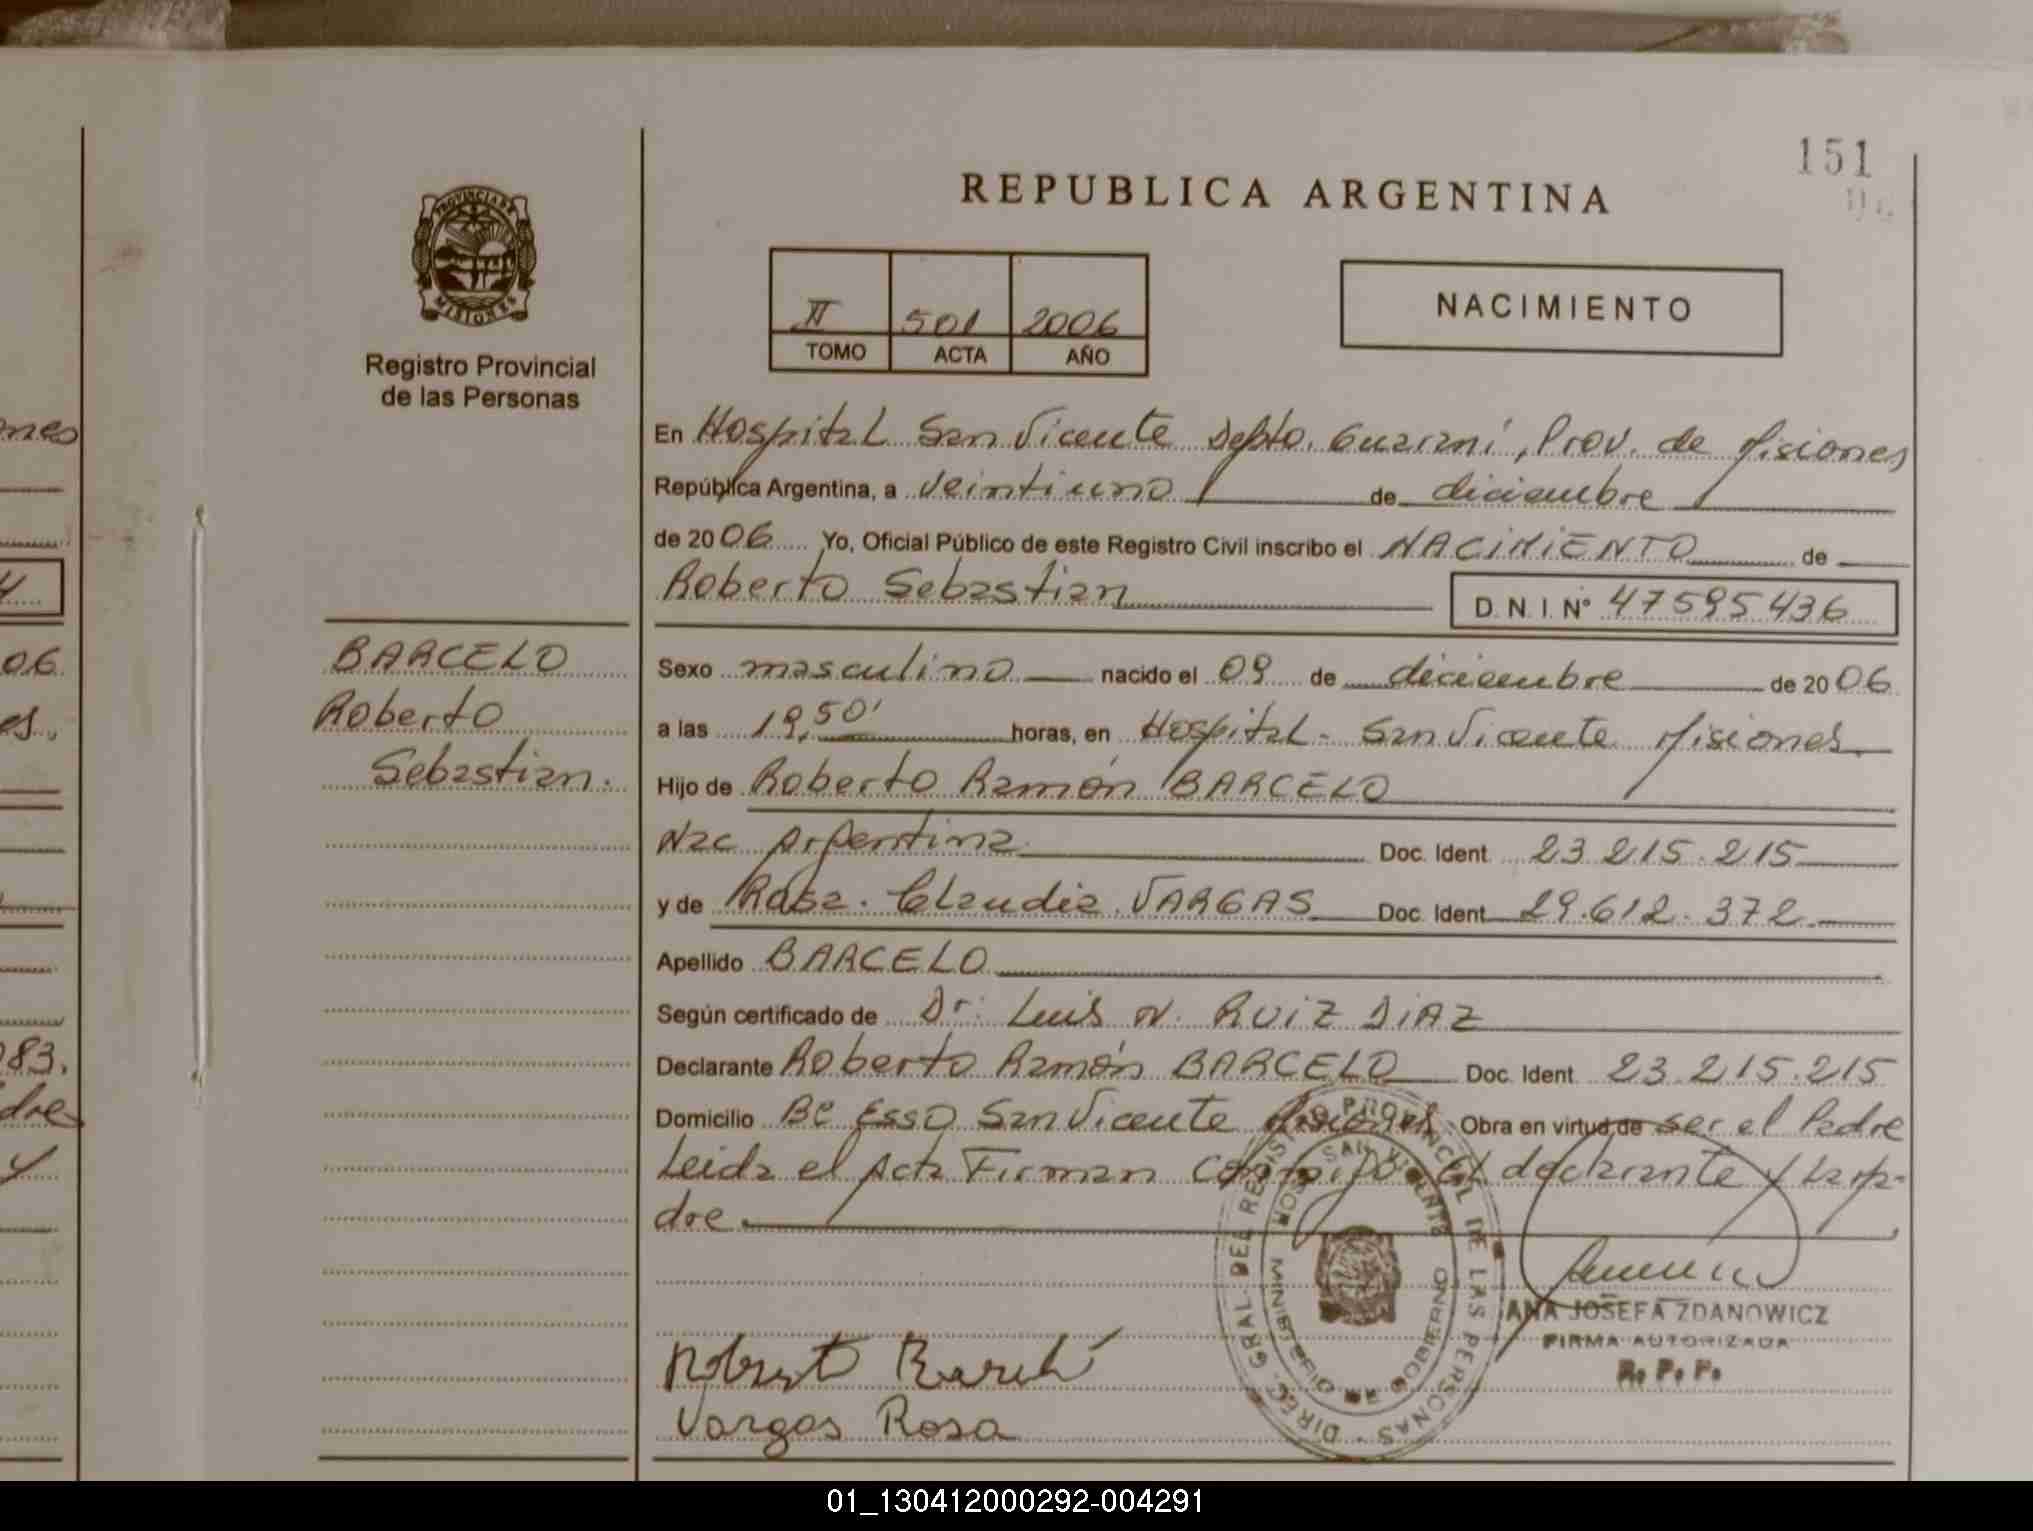 151
REPUBLICA ARGENTINA
PROVINCIA DE
MISIONES
Registro Provincial
de las Personas
II 501 2006
TOMO ACTA AÑO
NACIMIENTO
En Hospital San Vicente Depto. Guaraní, Prov. de Misiones
República Argentina, a veintiuno de diciembre
de 2006 Yo, Oficial Público de este Registro Civil inscribo el NACIMIENTO de
Roberto Sebastian D. N. I. N° 47595436
BARCELO
Roberto
Sebastian.
Sexo masculino nacido el 09 de diciembre de 2006
a las 19,50' horas, en Hospital - San Vicente Misiones
Hijo de Roberto Ramón BARCELO
Nac Argentina Doc. Ident. 23.215.215
y de Rosa. Claudia VARGAS Doc. Ident. 29.612.372
Apellido BARCELO
Según certificado de Dr: Luis N. RUIZ DIAZ
Declarante Roberto Ramón BARCELO Doc. Ident. 23.215.215
Domicilio Bº ESSO San Vicente Misiones Obra en virtud de ser el Padre
Leida el Acta Firman conmigo el declarante y la ma-
dre
DIREC. GRAL. DEL REGISTRO PROVINCIAL DE LAS PERSONAS
HOSP. SAN VICENTE
MINISTERIO DE GOBIERNO
ANA JOSEFA ZDANOWICZ
FIRMA AUTORIZADA
R. P. P.
Roberto Barceló
Vargas Rosa
ones
4
06
es.,
983.
dre
y
01_130412000292-004291